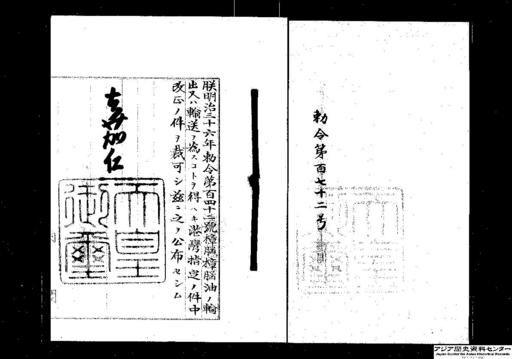 勅令第百七十二号
朕明治三十六年勅令第百四十二號樟腦樟腦油ノ輸
出又ハ輸送ヲ為スコトヲ得ヘキ港灣指定ノ件中
改正ノ件ヲ裁可シ茲ニ之ヲ公布セシム
嘉仁
天皇
御璽
アジア歴史資料センター
Japan Center for Asian Historical Records